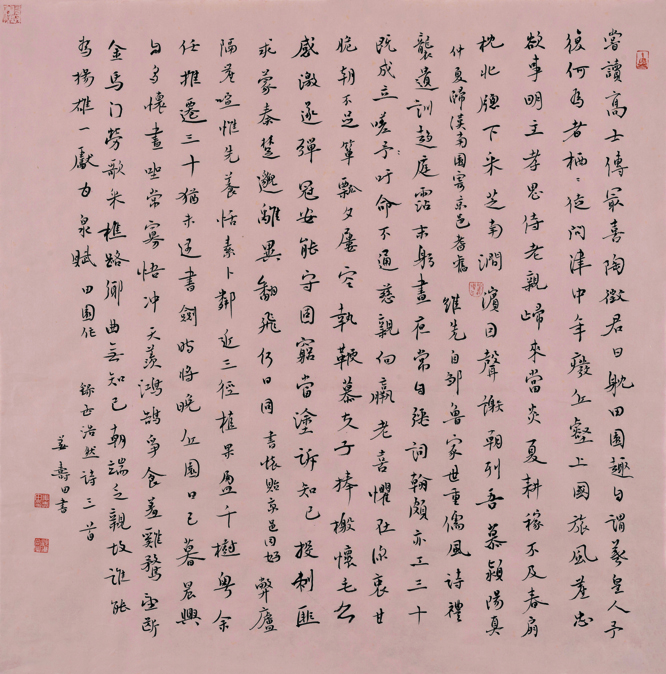 嘗讀高士傳最喜陶徵君日躭田園趣自謂羲皇人予
復何為者栖〻徒問津中年廢丘壑上國旅風塵忠
欲事明主孝思侍老親歸來當炎夏耕稼不及春扇
枕北牖下采芝南澗濱因聲謝朝列吾慕潁陽真
仲夏歸漢南園寄京邑耆舊 維先自鄒魯家世重儒風詩禮
襲遺訓趨庭霑末躬晝夜常自强詞翰頗亦工三十
既成立嗟予吁命不通慈親向羸老喜懼在深衷甘
脆朝不足簞瓢夕屢空執鞭慕夫子捧檄懷毛公
感激遂彈冠安能守固窮當塗訴知己投刺匪
求蒙秦楚邈離異翻飛何日同 書懷貽京邑同好 弊廬
隔塵喧惟先養恬素卜鄰近三徑植果盈千樹粵余
任推遷三十猶未遇書劍時將晚丘園日已暮晨興
自多懷晝坐常寡悟冲天羨鴻鵠爭食羞雞鶩望斷
金馬门勞歌采樵路鄉曲無知己朝端乏親故誰能
為揚雄一獻甘泉賦 田園作 錄孟浩然詩三首
姜壽田書